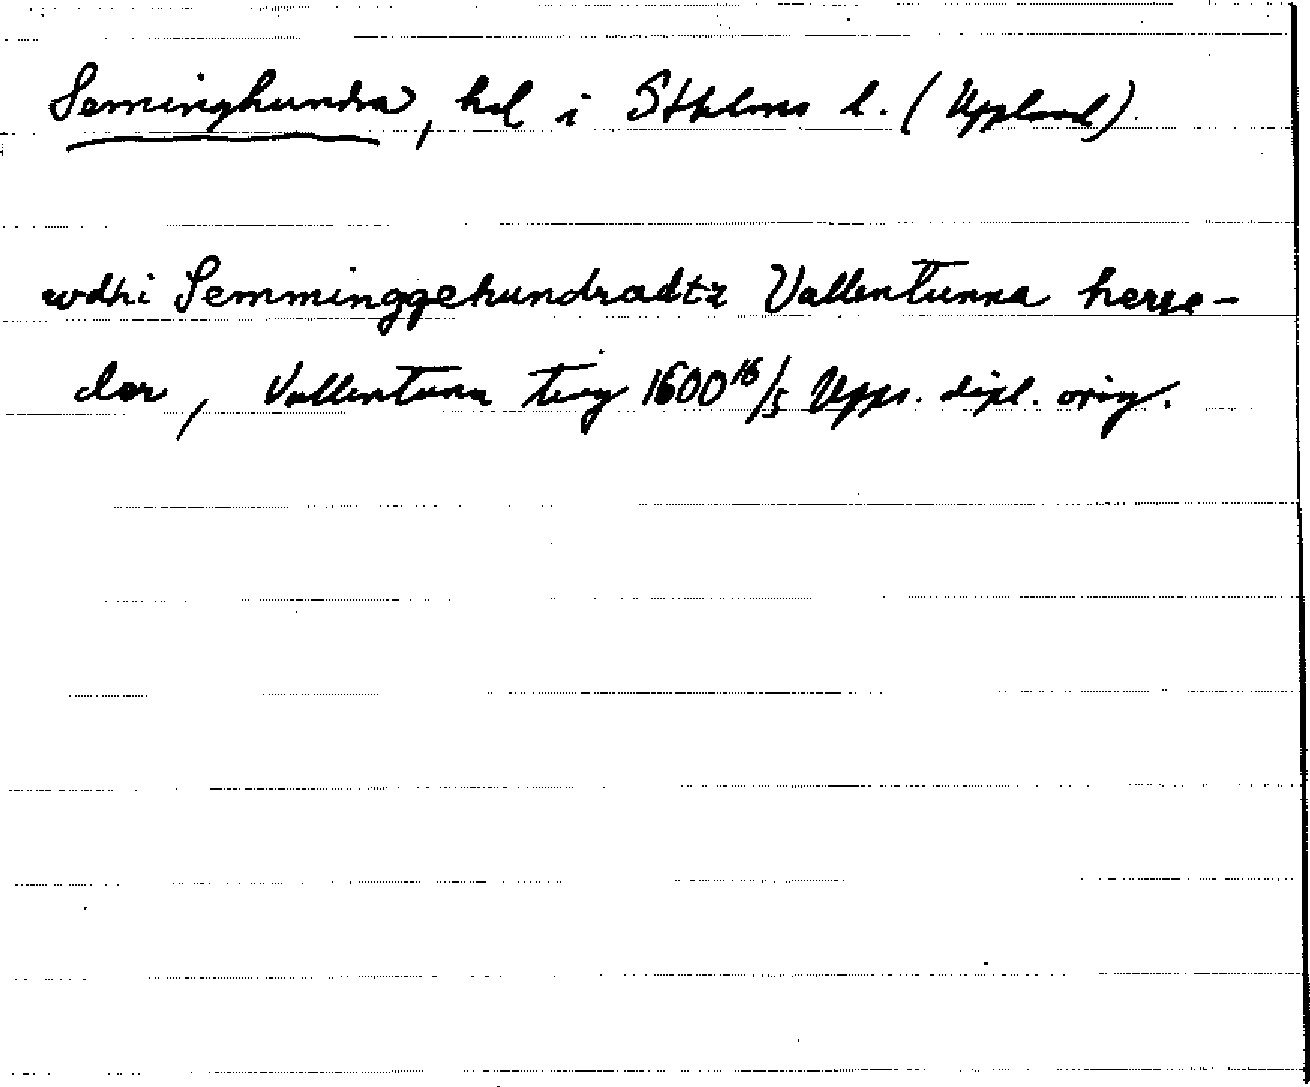 Seminghundra, hd i Sthlms l. (Uppland).
wdhi Semminggehundradtz Vallentunna herre-
der, Vallentuna ting 1600 16/5 Upps. dipl. orig.